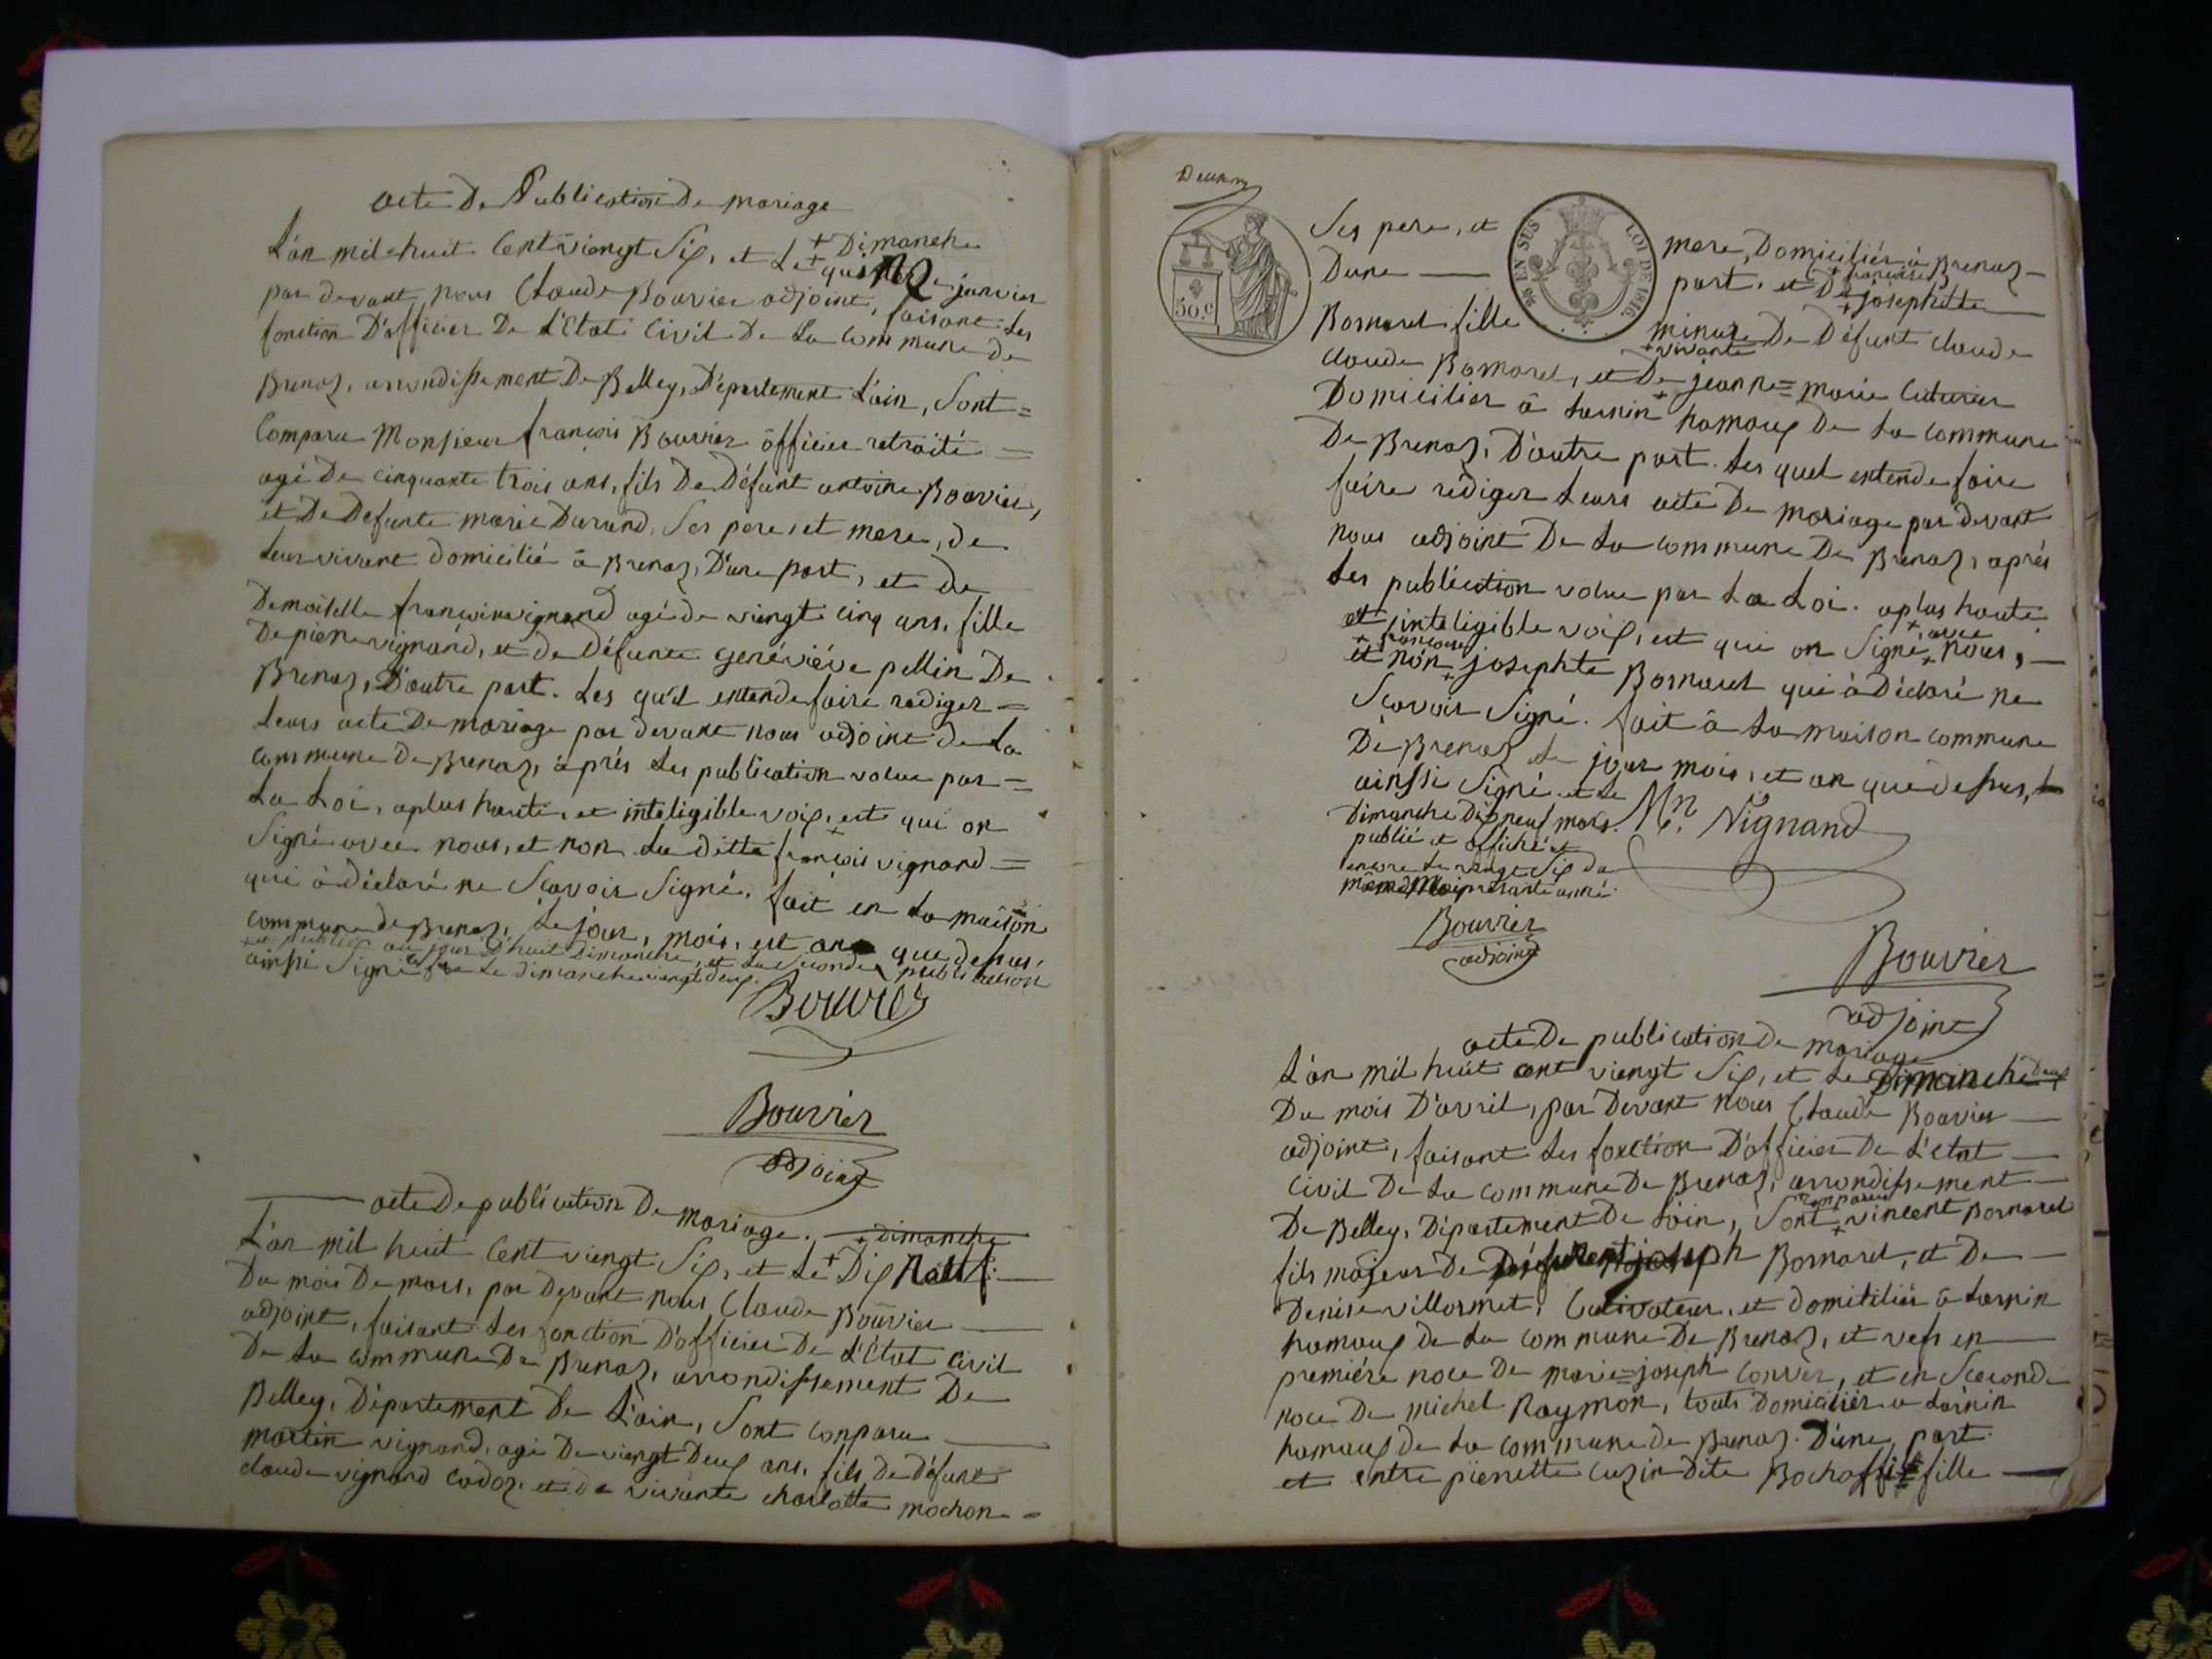 acte De Publication De mariage
L'an mil=huit Cent viengt Six, et Le + Dimanche
+ quinze janvier
par devant nous Claude Bouvier adjoint, faisant Les
fonction D'officier De L'Etat Civil De La Commune de
Brenaz, arrondissement De Belley, Département L'ain, Sont=
Comparu Monsieur françois Bouvier officier retraité =
agé De Cinquante trois ans, fils De Défunt antoine Bouvier,
et De Defunte marie Durand, Ses pere, et mere, de
Leur vivant domicilié à Brenaz, D'une part, et de
Demoiselle françoise vignand agé de viengt cinq ans, fille
De piere vignand, et de Défunte genéviéve pellin De
Brenaz, D'autre part. Les quel entende faire rediger =
Leurs acte De mariage par devant nous adjoint de La
Commune De Brenaz, àprés Les publication volue par =
La Loi, aplus haute, et inteligible voix, est qui on
Signé avec nous, et non La ditte françois vignand =
qui à déclaré ne Scavoir Signé. fait en La maison
Commune de Brenaz, Le jour, mois, est an que dessus,
au jour D'huit Dimanche, et La Seconde publication
ainssi Signé Le dimanche viengt deux.
Bouvier
Bouvier
adjoint
acte De publication De mariage.
+ dimanche
L'an mil huit Cent viengt Six, et Le + Dix neuf
Du mois De mars, par Devant nous Claude Bouvier
adjoint, faisant Les fonction D'officier De L'Etat Civil
De La Commune De Brenaz, arrondissement De
Belley, Département De L'ain, Sont Conparu
martin vignand, agé De viengt Deux ans, fils De Défunt
claude vignand Cadoz, et de vivante charlotte mochon =
Ses pere, et mere, Domiciliés à Brenaz
Dune part, et De + françoise
+ josephtte
50.c
50 EN SUS LOI DE 1816.
Bornarel fille mineure De Défunt claude
+ vivante
claude Bornarel, et De + jeanne=marie Cuturier
Domicilier à Larnin hamaux De La Commune
De Brenaz, D'autre part. Les quel entende faire
faire rediger Leurs acte De mariage par devant
nous adjoint De La Commune De Brenaz, aprés
Les publication volue par La Loi. aplus haute,
et inteligible voix, est qui on Signé + avec nous,
+ françoise
et non + josephte Bornarel qui à Déclaré ne
Scavoir Signé. fait à La maison Commune
De Brenaz Le jour mois, et an que dessus,
ainssi Signé et Le
Dimanche Dix neuf mars.
publié et affiché et
encore Le viengt Six du
même mois présante anné.
Mn. Vignand
Bouvier
adjoint
Bouvier
adjoint
acte De publication De mariage
L'an mil huit cent viengt Six, et Le Dimanche deux
Du mois D'avril, par Devant nous Claude Bouvier
adjoint, faisant Les fonction D'officier De L'etat
Civil De La Commune De Brenaz, arrondissement
De Belley, Département De L'ain, Sont + comparu vincent Bornarel
fils majeur De Défunt joseph Bornarel, et De
Denise villermet, Cultivateur, et domicilier à Larnin
hamaux de La Commune De Brenaz, et vefs en
premiére noce De marie=joseph Conver, et en Seconde
noce De michel Raymon, touts Domicilier a Larnin
hamaux de La Commune de Brenaz. D'une part.
et entre pierrette Cuzin Dite fille